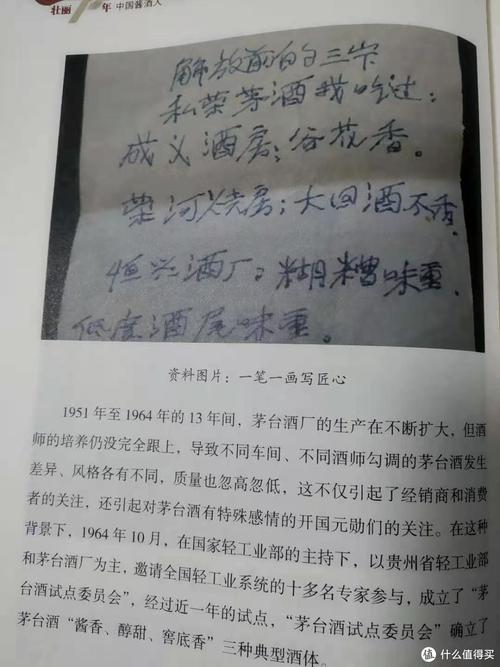 壮丽 年 中国酱酒人
解放前的三家
私营茅酒我吃过:
成义酒房;谷花香。
荣河烧房;大回酒不香.
恒兴酒厂:糊糟味重.
低度酒尾味重。
资料图片:一笔一画写匠心
1951 年至 1964 年的 13 年间,茅台酒厂的生产在不断扩大,但酒
师的培养仍没完全跟上,导致不同车间、不同酒师勾调的茅台酒发生
差异、风格各有不同,质量也忽高忽低,这不仅引起了经销商和消费
者的关注,还引起对茅台酒有特殊感情的开国元勋们的关注。在这种
背景下,1964 年 10 月,在国家轻工业部的主持下,以贵州省轻工业部
和茅台酒厂为主,邀请全国轻工业系统的十多名专家参与,成立了“茅
台酒试点委员会”,经过近一年的试点,“茅台酒试点委员会”确立了
茅台酒“酱香、醇甜、窖底香”三种典型酒体。
值 什么值得买